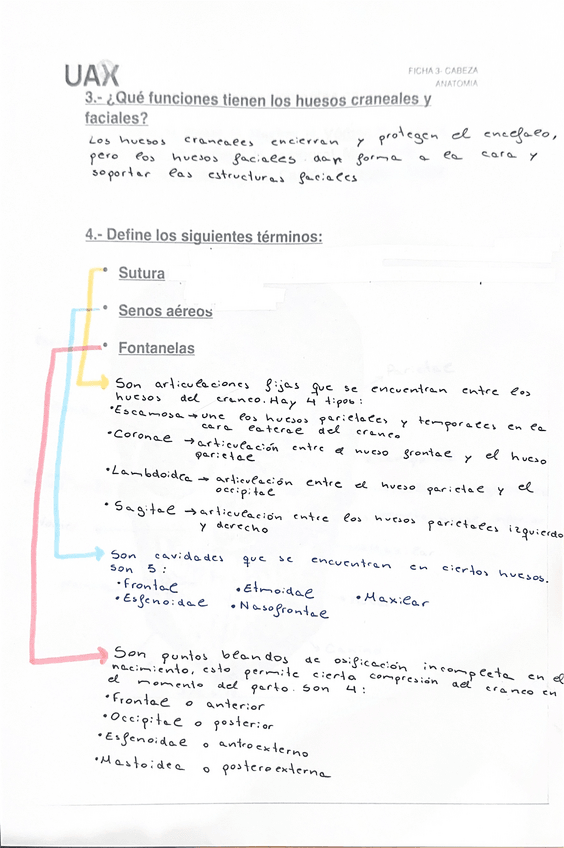 UAX
FICHA 3- CABEZA
ANATOMIA
3.- ¿Qué funciones tienen los huesos craneales y
faciales?
Los huesos craneales encierran y protegen el encefalo,
pero los huesos faciales dan forma a la cara y
soportar las estructuras faciales
4.- Define los siguientes términos:
• Sutura
• Senos aéreos
• Fontanelas
Son articulaciones fijas que se encuentran entre los
huesos del craneo. Hay 4 tipos:
• Escamosa → une los huesos parietales y temporales en la
cara lateral del craneo
• Coronal → articulación entre el hueso frontal y el hueso
parietal
• Lambdoidea → articulación entre el hueso parietal y el
occipital
• Sagital → articulación entre los huesos parietales izquierdo
y derecho
Son cavidades que se encuentran en ciertos huesos.
Son 5:
• Frontal • Etmoidal • Maxilar
• Esfenoidal • Nasofrontal
Son puntos blandos de osificación incompleta en el
nacimiento, esto permite cierta compresión del craneo en
el momento del parto. Son 4:
• Frontal o anterior
• Occipital o posterior
• Esfenoidal o antroexterno
• Mastoidea o posteroexterna